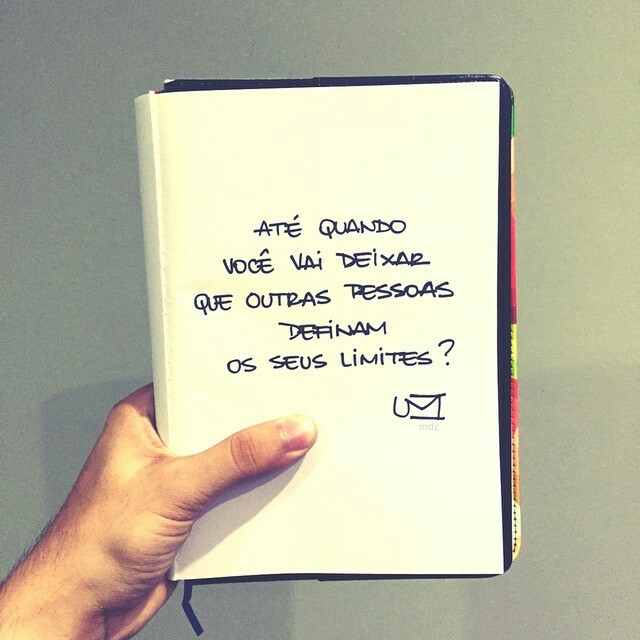 ATÉ QUANDO
VOCÊ VAI DEIXAR
QUE OUTRAS PESSOAS
DEFINAM
OS SEUS LIMITES?
U
mdz